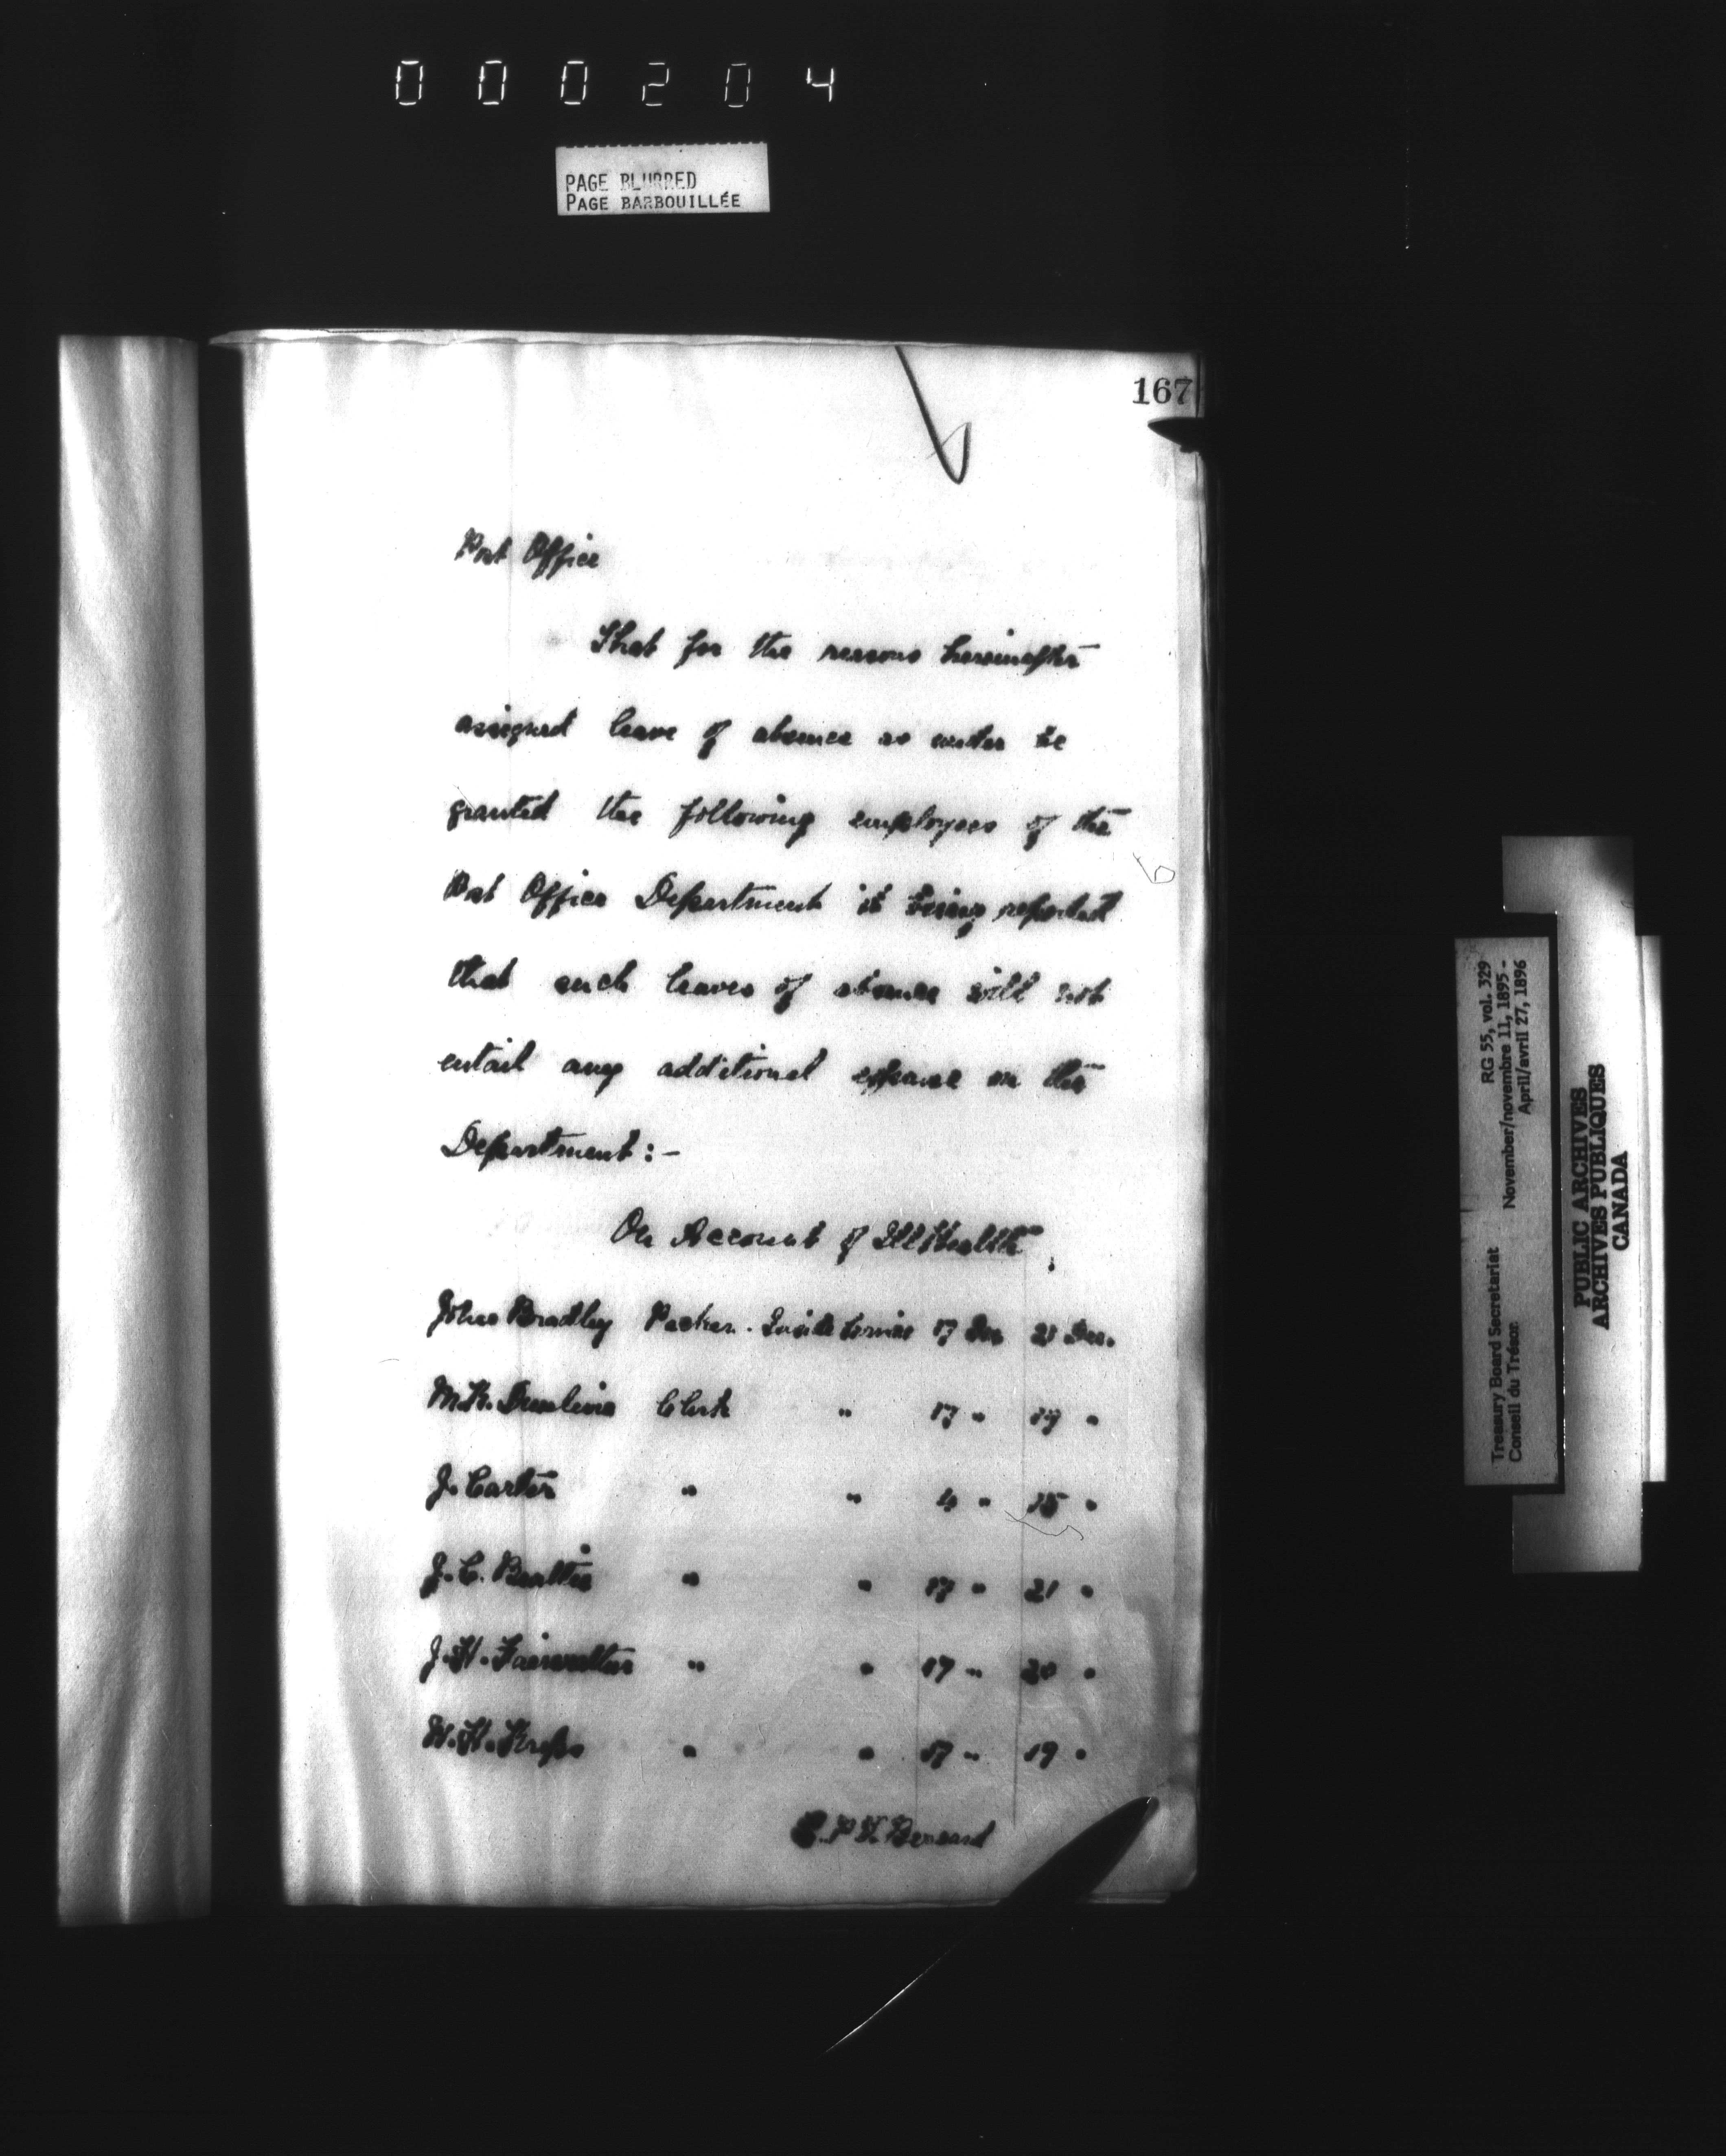 000204
PAGE BLURRED
PAGE BARBOUILLÉE
167
Post Office
That for the reasons hereinafter
assigned leave of absence as under be
granted the following employees of the
Post Office Department it being reported
that such leaves of absence will not
entail any additional expense on the
Department:-
On Account of Ill Health
John Bradley Packer. Inside Service 17 Dec 21 Dec.
M.K. Clerk " 17 " 19 "
J. Carter " " 4 " 15 "
J.C. " " 17 " 21 "
J.H. Fairweather " " 17 " 20 "
W.H. " " 17 " 19 "
Bernard
Treasury Board Secretariat RG 55, vol. 329
Conseil du Trésor November/novembre 11, 1895 -
April/avril 27, 1896
PUBLIC ARCHIVES
ARCHIVES PUBLIQUES
CANADA